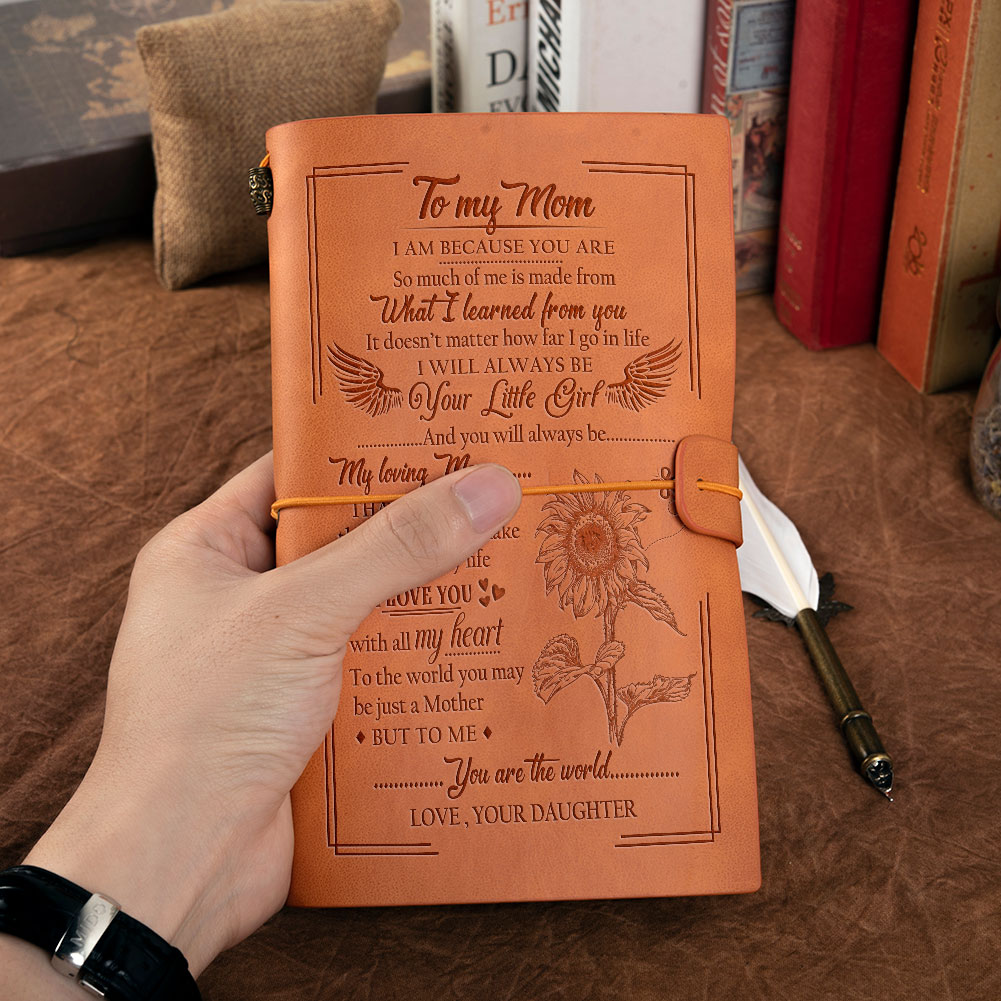 DA
MICHA
To my Mom
I AM BECAUSE YOU ARE
So much of me is made from
What I learned from you
It doesn't matter how far I go in life
I WILL ALWAYS BE
Your Little Girl
And you will always be
My loving
LOVE YOU
with all my heart
To the world you may
be just a Mother
BUT TO ME
You are the world
LOVE, YOUR DAUGHTER